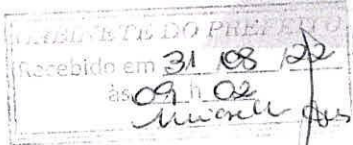 GABINETE DO PREFEITO
Recebido em 31 08 /22
às 09 h 02